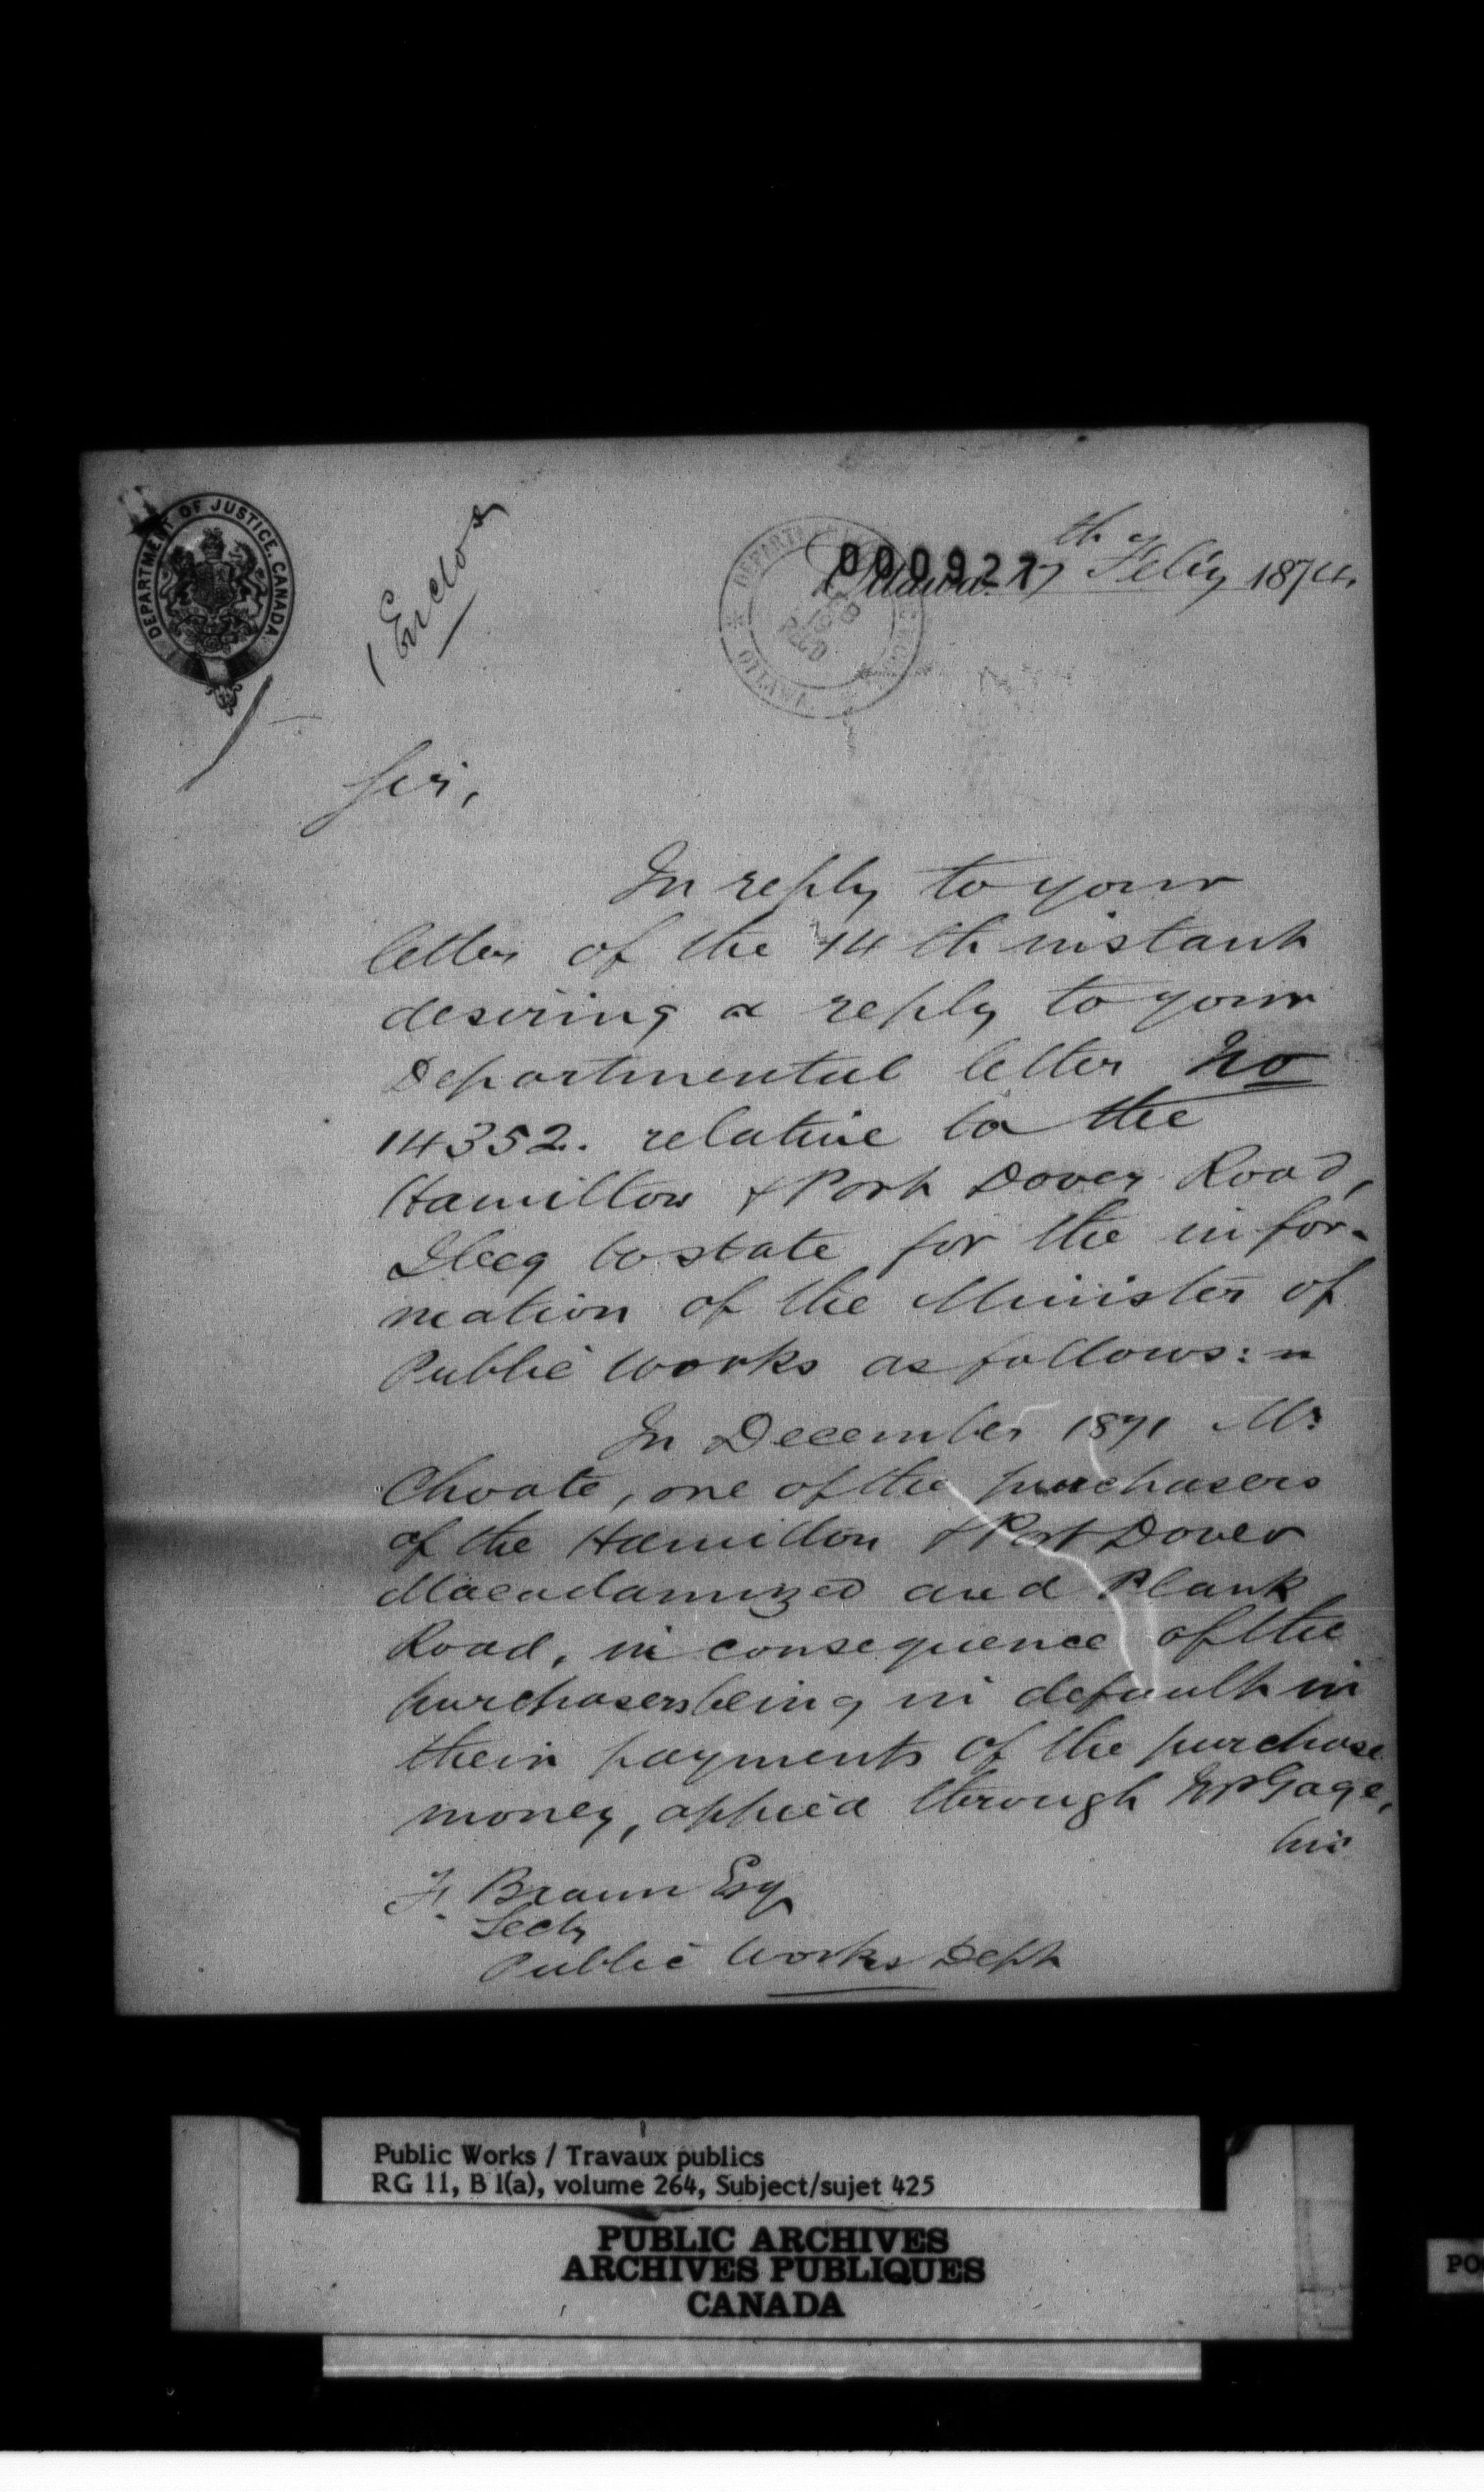 DEPARTMENT OF JUSTICE, CANADA
1 Enclos
000927
Ottawa. 17th Feby 1874.
OTTAWA
FEB
19
REC'D
Sir,
In reply to your
letter of the 14th instant
desiring a reply to your
Departmental letter No
14352. relative to the
Hamilton & Port Dover Road,
I beg to state for the infor-
mation of the Minister of
Public Works as follows:
In December 1871 Mr
Choate, one of the purchasers
of the Hamilton & Port Dover
Macadamized and Plank
Road, in consequence of the
purchasers being in default in
their payments of the purchase
money, applied through Mr Gage,
his
F. Braun Esq
Secy
Public Works Dept
Public Works / Travaux publics
RG 11, B 1(a), volume 264, Subject/sujet 425
PUBLIC ARCHIVES
ARCHIVES PUBLIQUES
CANADA
PO